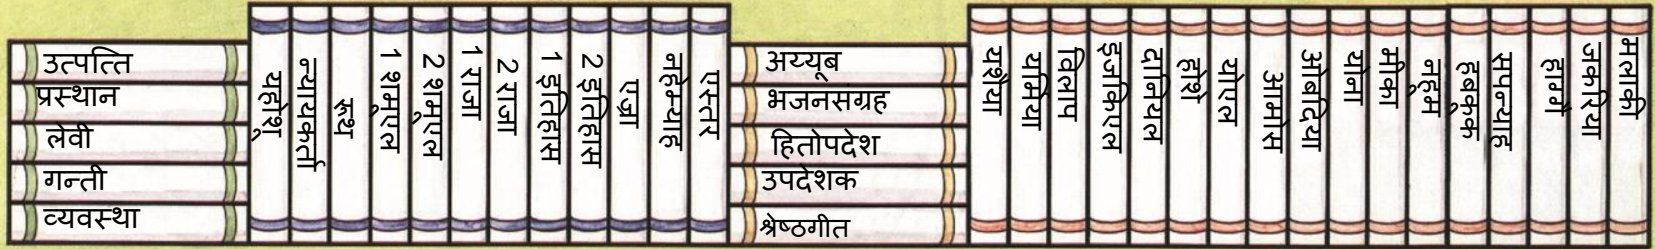 उत्पत्ति
प्रस्थान
लेवी
गन्ती
व्यवस्था
यहोशू
न्यायकर्ता
रूथ
1 शमुएल
2 शमुएल
1 राजा
2 राजा
1 इतिहास
2 इतिहास
एज्रा
नहेम्याह
एस्तर
अय्यूब
भजनसंग्रह
हितोपदेश
उपदेशक
श्रेष्ठगीत
यशैया
यर्मिया
विलाप
इजकिएल
दानियल
होशे
योएल
आमोस
ओबदिया
योना
मीका
नहूम
हबकूक
सपन्याह
हाग्गै
जकरिया
मलाकी